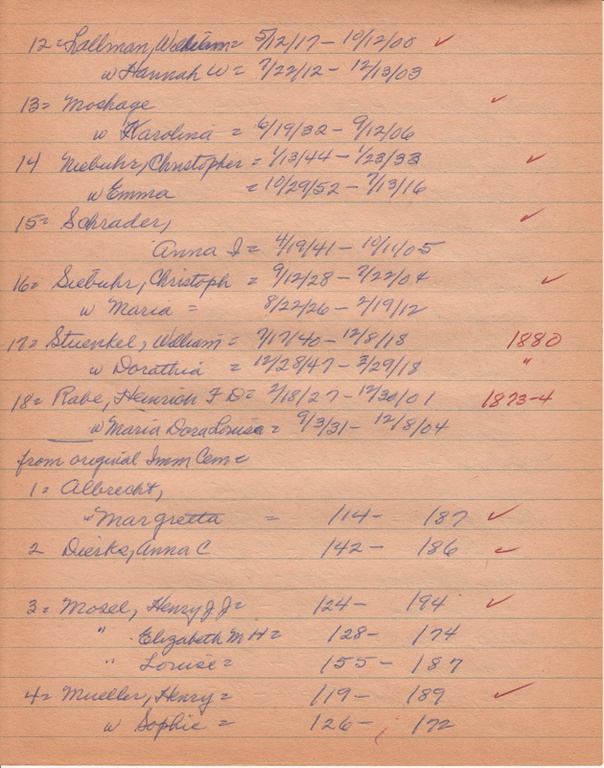 12= Lallman, William= 5/12/17 - 10/12/00 ✓
w Hannah W = 7/22/12 - 12/13/03
13= Moshage ✓
w Karolina = 6/19/32 - 9/12/06
14 Niebuhr, Christopher = 1/13/44 - 1/23/33 ✓
w Emma = 10/29/52 - 7/13/16
15= Schrader, ✓
Anna I = 4/19/41 - 10/11/05
16= Siebuhr, Christoph = 9/12/28 - 7/22/04 ✓
w Maria = 8/22/26 - 2/19/12
17= Stuenkel, William = 7/17/40 - 12/8/18 1880
w Dorathia = 12/28/47 - 3/29/18 "
18= Rabe, Heinrich F D= 2/18/27 - 12/30/01 1873-4
w Maria Dora Louisa = 9/3/31 - 12/8/04
from original Imm Cem=
1= Albrecht,
" Margretta = 114- 187 ✓
2 Dierks, Anna C 142- 186 ✓
3= Mosel, Henry J J= 124- 194 ✓
" Elizabeth M H= 128- 174
" Louise= 155- 187
4= Mueller, Henry= 119- 189 ✓
w Sophie = 126- 172